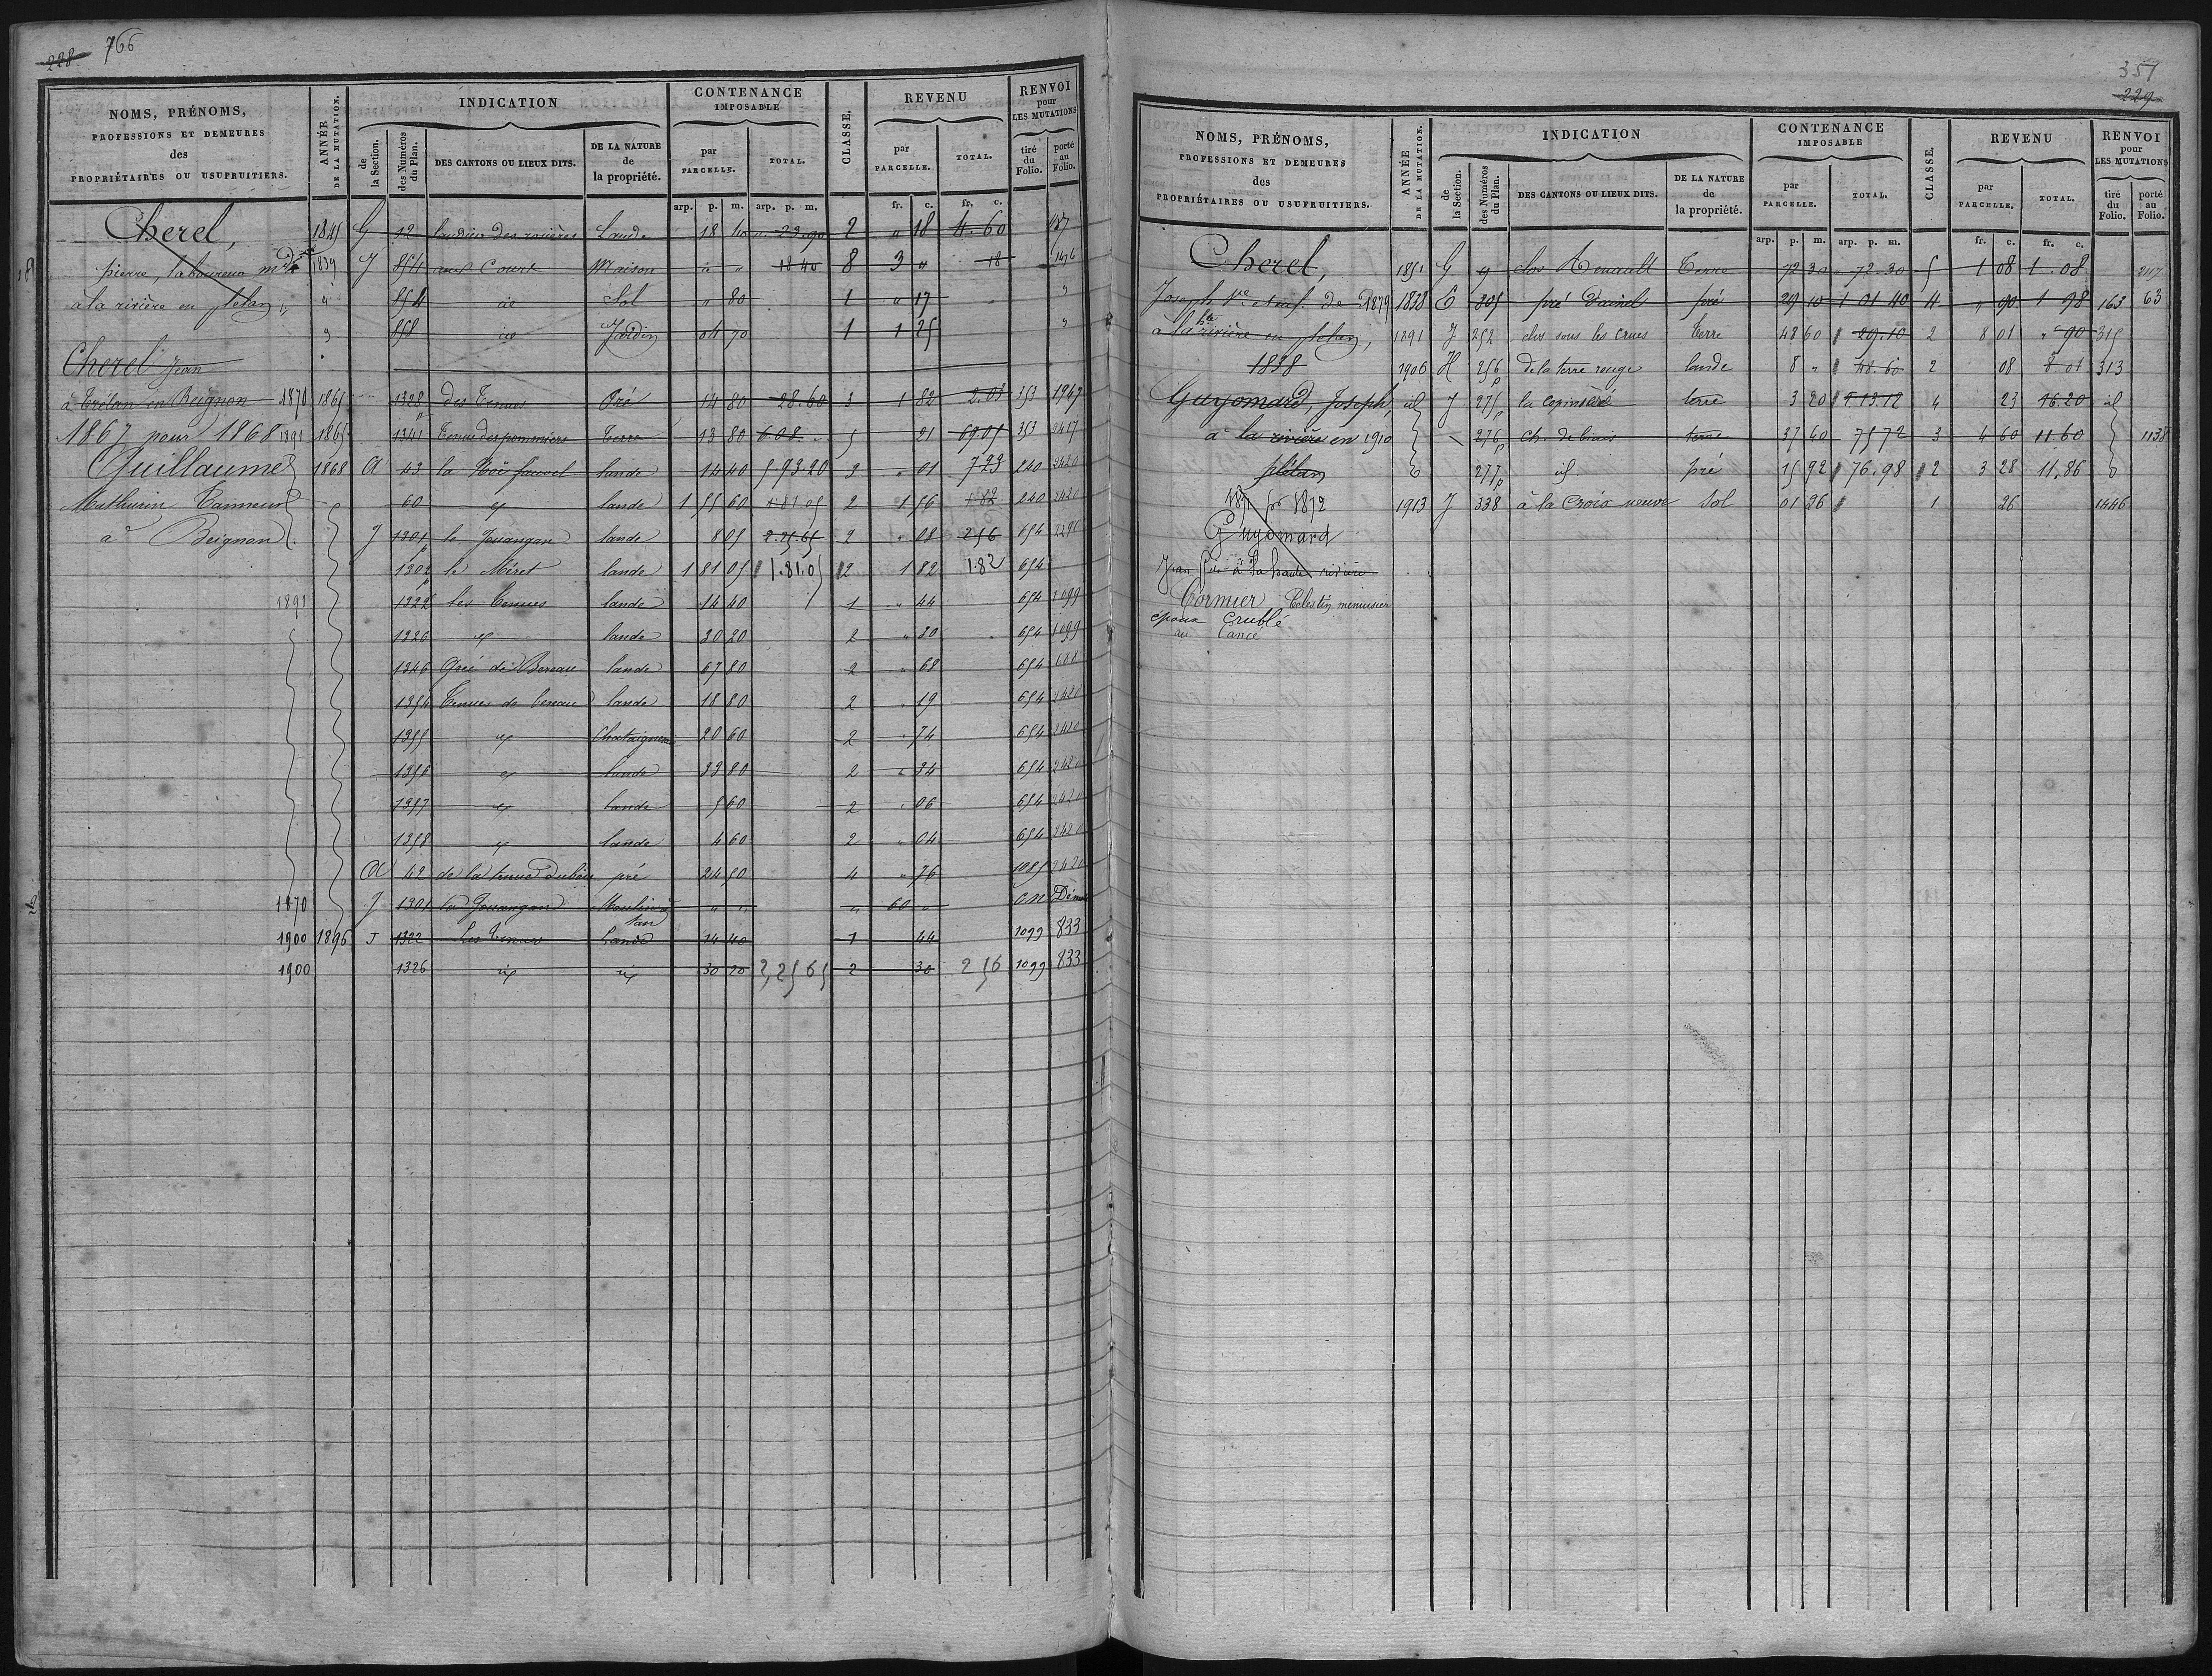 228 766
NOMS, PRÉNOMS, PROFESSIONS ET DEMEURES des PROPRIÉTAIRES OU USUFRUITIERS.
ANNÉE DE LA MUTATION.
INDICATION
de la Section.
des Numéros du Plan.
DES CANTONS OU LIEUX DITS.
DE LA NATURE de la propriété.
CONTENANCE IMPOSABLE
par PARCELLE.
TOTAL.
CLASSE.
REVENU
par PARCELLE.
TOTAL.
RENVOI pour LES MUTATIONS
tiré du Folio.
porté au Folio.
arp. p. m. arp. p. m. fr. c. fr. c.
Cherel, 1841 G 12 Lande 18 2 " 18 4.60
pierre, laboureur 1839 J 854 aux Court Maison " " 18 40 8 3 " 18 1476
à la rivière en plelan, " 854 id Sol " 80 1 " 17 "
" 858 id Jardin 04 70 1 1 25 "
Cherel Jean
à Trélan en Beignon 1870 1865 1328 des Tenues Pré 14 80 28.60 3 1 82 2.03 353 1967
1867 pour 1868 1891 1865 1341 Tenue des pommiers Terre 13 80 6.08 5 21 353 2417
Guillaume 1868 A 43 lande 14 40 5 93 20 3 " 01 7 23 240 2420
Mathurin Tanneur 60 id lande 1 55 60 1 81 05 2 1 56 1 82 240 2420
à Beignon J 1301 le Jouangan lande 8 05 2.25.65 2 " 08 2 56 654 2296
1302 le Méret lande 1 81 05 1.81.05 2 1 82 1.82 654
1891 1322 les Tenues lande 14 40 1 " 44 654 1099
1326 id lande 30 20 2 " 30 654 1099
1346 lande 67 80 2 " 68 654 688
1354 Tenue de lande 18 80 2 " 19 654 2420
1355 id Chataigneraie 20 60 2 " 74 654 2420
1356 id lande 33 80 2 " 34 654 2420
1357 id lande 5 60 2 " 06 654 2420
1358 id lande 4 60 2 " 04 654 2420
A 42 de la tenue pré 24 50 4 " 76 1085 2420
1870 J 1301 la Jouangan Moulin à tan " " " 60 " C.N. Démol
1900 1896 J 1322 Les Tenues Lande 14 40 1 44 1099 833
1900 1326 id id 30 20 2,25 65 2 30 2 56 1099 833
351
229
NOMS, PRÉNOMS, PROFESSIONS ET DEMEURES des PROPRIÉTAIRES OU USUFRUITIERS.
ANNÉE DE LA MUTATION.
INDICATION
de la Section.
des Numéros du Plan.
DES CANTONS OU LIEUX DITS.
DE LA NATURE de la propriété.
CONTENANCE IMPOSABLE
par PARCELLE.
TOTAL.
CLASSE.
REVENU
par PARCELLE.
TOTAL.
RENVOI pour LES MUTATIONS
tiré du Folio.
porté au Folio.
arp. p. m. arp. p. m. fr. c. fr. c.
Cherel, 1851 G 9 clos Renault Terre 72 30 72.30 5 1 08 1.08 247
Joseph Ve 1879 1838 C 305 pré pré 29 10 1 01 40 4 " 90 1 98 163 63
à la hte rivière en plelan, 1891 J 252 clos sous les crues terre 48 60 29.10 2 8 01 " 90 315
1838 1906 H 256 p de la terre rouge lande 8 " 48.60 2 08 8.01 313
Guyomard, Joseph, id J 275 p la copinière terre 3 20 1.13.12 4 23 16.20 id
à la rivière en 1910 276 p ch. debiais terre 37 60 75 72 3 4 60 11.60 1138
plélan 277 p id pré 15 92 76.98 2 3 28 11.86
1871 pr 1872 1913 J 338 à la Croix neuve Sol 01 26 1 26 1446
Guyomard
Jean fils à la haute rivière
Cormier Célestin menuisier
époux Crublé
au Cancé